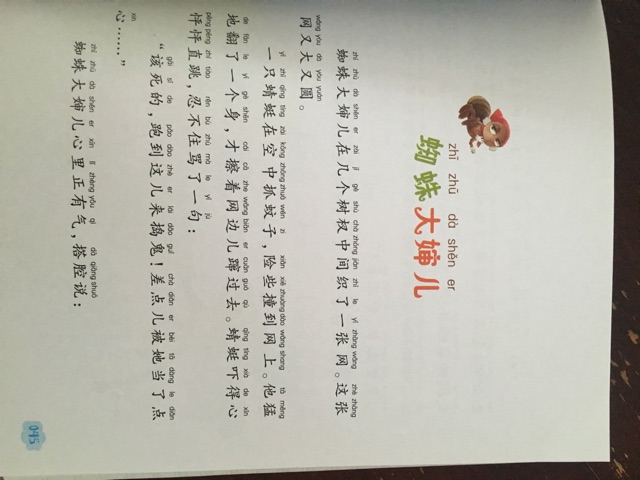 zhī zhū dà shěn er
蜘蛛大婶儿
zhī zhū dà shěn er zài jǐ gè shù chà zhōng jiān zhī le yì zhāng wǎng zhè zhāng
蜘蛛大婶儿在几个树杈中间织了一张网。这张
wǎng yòu dà yòu yuán
网又大又圆。
yì zhī qīng tíng zài kōng zhōng zhuā wén zi xiǎn xiē zhuàng dào wǎng shang tā měng
一只蜻蜓在空中抓蚊子，险些撞到网上。他猛
de fān le yí gè shēn cái cā zhe wǎng biān er cuān guò qù qīng tíng xià de xīn
地翻了一个身，才擦着网边儿蹿过去。蜻蜓吓得心
pēng pēng zhí tiào rěn bú zhù mà le yí jù
怦怦直跳，忍不住骂了一句：
gāi sǐ de pǎo dào zhè er lái dǎo guǐ chà diǎn er bèi tā dàng le diǎn
“该死的，跑到这儿来捣鬼！差点儿被她当了点
xin
心……”
zhī zhū dà shěn er xīn lǐ zhèng yǒu qì dā qiāng shuō
蜘蛛大婶儿心里正有气，搭腔说：
045